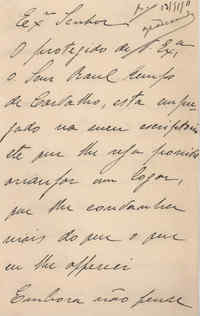 Exº Senhor
O protegido de V. Exª,
o Snr Raul
de Carvalho, está empre
gado no meu escriptorio
até que lhe seja possivel
arranjar um logar,
que lhe
mais do que o que
eu lhe offereci
Embora não pense